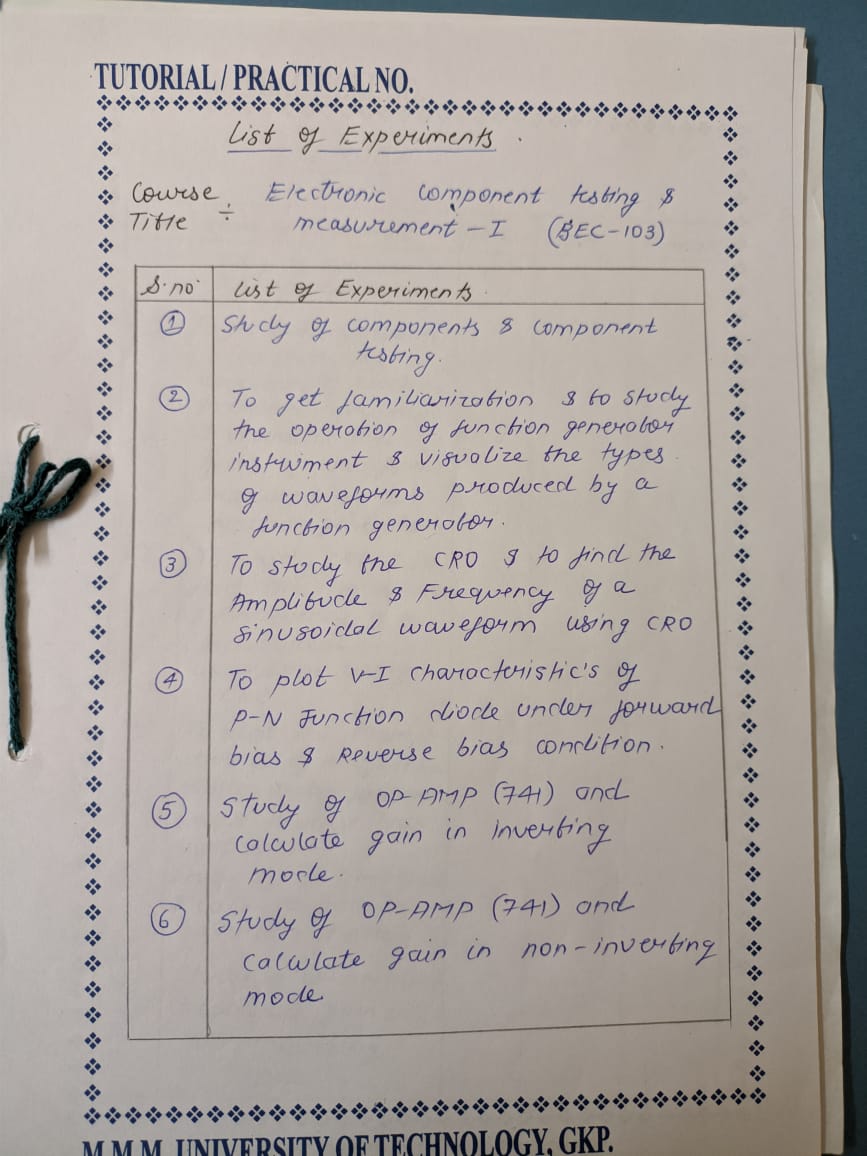 TUTORIAL / PRACTICAL NO.
List of Experiments.
Course Title ÷ Electronic component testing &
measurement - I (BEC-103)
S.no List of Experiments.
1 Study of components & component
testing.
2 To get familiarization & to study
the operation of function generator
instrument & visualize the types
of waveforms produced by a
function generator.
3 To study the CRO & to find the
Amplitude & Frequency of a
sinusoidal waveform using CRO
4 To plot V-I characteristic's of
P-N Junction diode under forward
bias & Reverse bias condition.
5 Study of OP-AMP (741) and
calculate gain in inverting
mode.
6 Study of OP-AMP (741) and
calculate gain in non-inverting
mode
M.M.M. UNIVERSITY OF TECHNOLOGY, GKP.